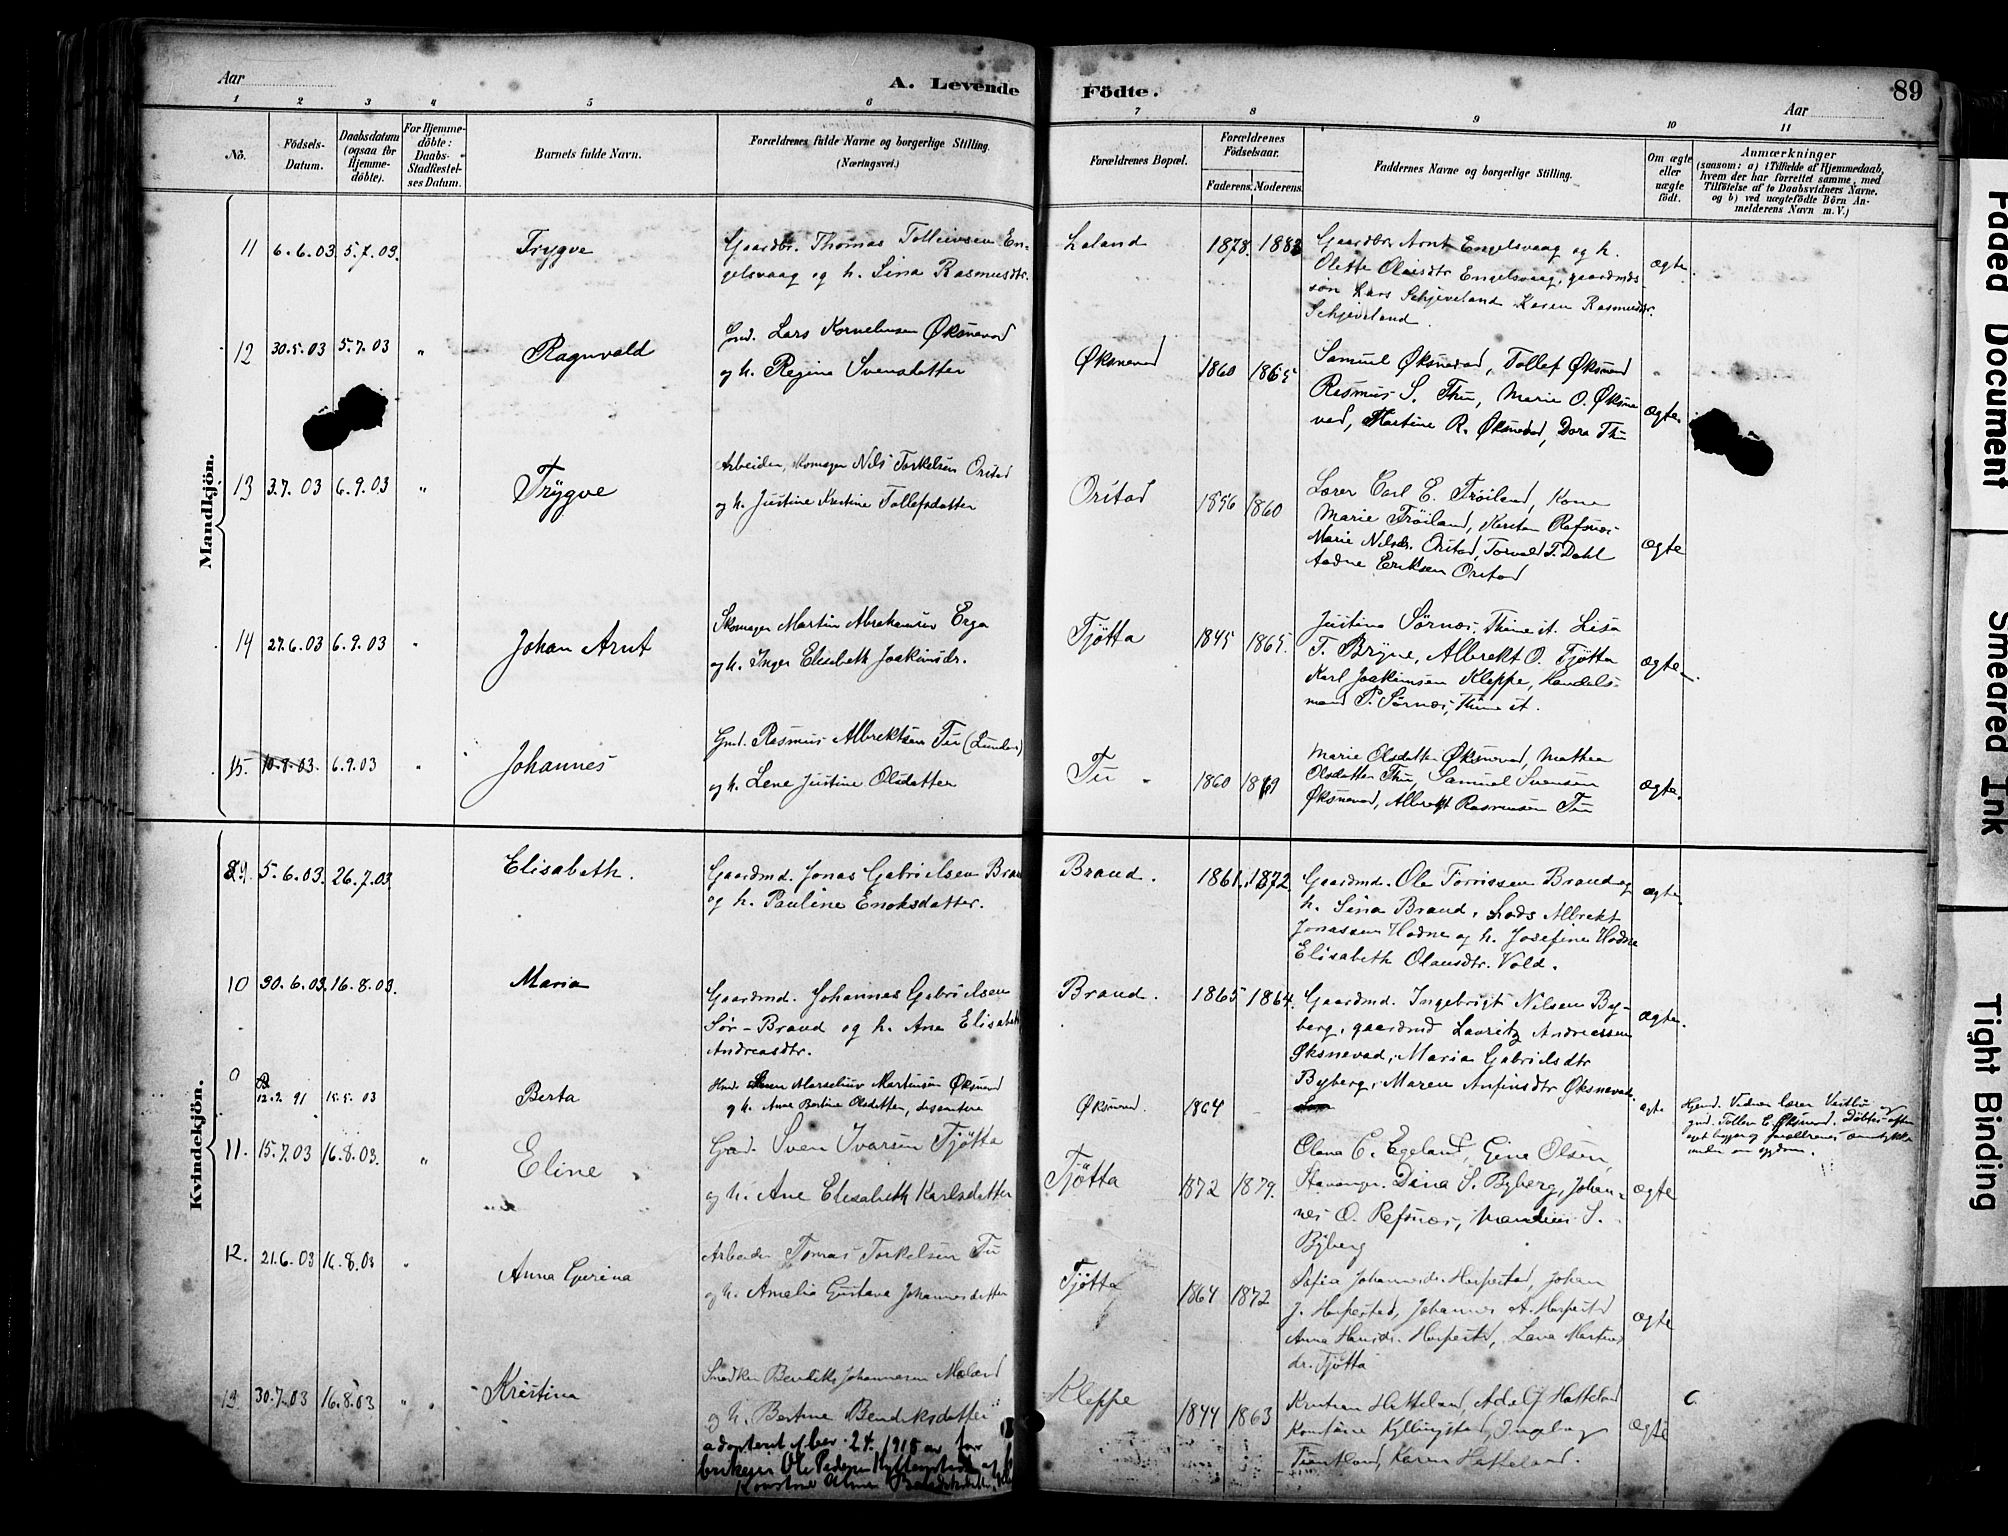 Aar
A. Levende
Födte.
Aar
89
1 2 3 4 5 6 7 8 9 10 11
No.
Födsels-
Datum.
Daabsdatum
(ogsaa for
Hjemme-
döbte).
For Hjemme-
döbte:
Daabs-
Stadfæstel-
ses Datum.
Barnets fulde Navn.
Forældrenes fulde Navne og borgerlige Stilling.
(Næringsvei.)
Forældrenes Bopæl.
Forældrenes
Födselsaar.
Faderens. Moderens.
Faddernes Navne og borgerlige Stilling.
Om ægte
eller
uægte
födt.
Anmærkninger
(saasom: a) i Tilfælde af Hjemmedaab,
hvem der har forrettet samme, med
Tilföielse af to Daabsvidners Navne,
og b) ved uægtefödte Börn An-
melderens Navn m. V.)
Mandkjön.
11 6.6.03 5.7.03. Trygve
Gaardbr. Thomas Tolleivsen En-
gelsvaag og h. Sina Rasmusdtr.
Laland 1878. 1883
Gaardbr. Arnt Engelsvaag og h.
Olette Olaisdtr Engelsvaag, gaardmds
søn Lars Schjeveland Karen Rasmusdtr.
Schjeveland.
ægte.
12 30.5.03 5.7.03 " Ragnvald
Gmd. Lars Kornelius­sen Øksnevad
og h. Regine Svensdatter
Øksnevad 1860 1865
Samuel Øksnevad, Tollef Øksnevad
Rasmus S. Thu, Marie O. Øksne
vad, Martine R. Øksnevad, Dora Thu
ægte.
13 3.7.03 6.9.03 " Trygve
Arbeider, skomager Nils Torkelsen Orstad
og h. Justine Kristine Tollefsdatter
Orstad 1856 1860
Lærer Carl E. Frøiland, Kone
Marie Frøiland, Karsten Refsnæs
Marie Nilsdr. Orstad, Torvald T. Dahl
Aadne Eriksen Orstad
ægte
14 27.6.03 6.9.03 " Johan Arnt
Skomager Martin Abrahamsen Erga
og h. Inger Elisabeth Joakimsdr.
Tjøtta 1845 1865.
Justine Sørnæs, Thime st. Lisa
T. Bryne, Albrekt O. Tjøtta
Karl Joakimsen Kleppe, Handels-
mand P. Sørnæs, Thime st.
ægte.
15. 10.8.03. 6.9.03 " Johannes
Gmd. Rasmus Albrektsen Tu (Lunden)
og h. Lene Justine Olsdatter
Tu 1860
Marie Olsdatter Øksnevad, Mathea
Olsdatter Thu, Samuel Svensen
Øksnevad, Albrekt Rasmussen Tu
ægte.
Kvindekjön.
5.6.03. 26.7.03. Elisabeth.
Gaardmd. Jonas Gabrielsen Brau
og h. Pauline Enoksdatter.
Braud. 1861. 1872.
Gaardmd. Ole Torrissen Braud og
h. Sina Braud, Lods Albrekt
Jonassen Hodne og h. Josefine Hodne
Elisabeth Olausdtr. Vold.
ægte.
10 30.6.03. 16.8.03. Maria
Gaardmd. Johannes Gabrielsen
Sør-Braud og h. Ane Elisabeth
Andreasdtr.
Braud. 1865 1864.
Gaardmd. Ingebrigt Nilsen By-
berg, gaardmd Lauritz Andreassen
Øksnevad, Maria Gabrielsdtr
Byberg, Maren Anfinsdtr Øksnevad.
ægte.
12.2.91 15.5.03 Berta
Marselius Martinsen Øksnevad
og h. Ane Bertine Olsdatter, dissentere
Øksnevad. 1864 -
ægte
Hjmd. Vidner lærer
gmd. Tollev E. Øksnevad. Døbtes efter
11. 15.7.03 16.8.03. " Eline
Gmd. Sven Ivarsen Tjøtta
og h. Ane Elisabeth Karlsdatter
Tjøtta 1872 1879.
Olena C. Egeland, Gina Olsen,
Stavanger. Dina S. Byberg, Johan-
nes O. Refsnæs, S.
Byberg
ægte
12. 21.6.03 16.8.03 " Anna Gurina
Arbeider Tomas Torkelsen Tu
og h. Amalia Gustava Johannesdatter
Tjøtta 1864 1872
Sofia Johannesdr. Horpestad, Johan
J. Horpestad, Johannes A. Horpestad
Anna Hansdr. Horpestad, Lava Martins
dr. Tjøtta
ægte
13. 30.7.03 16.8.03 " " Kristina
Snedker Bendik Johannesen Maland
og h. Bertine Bendiksdatter
adopteret 1918 av fa-
brikeier Ole Pedersen Kyllingstad og
Kleppe 1844 1863
Kristian Hatteland, Adolf Hatteland
Konstanse Kyllingstad, Ingeborg
Karen Hatteland.
ægte
C.
Faded Document
Smeared Ink
Tight Binding